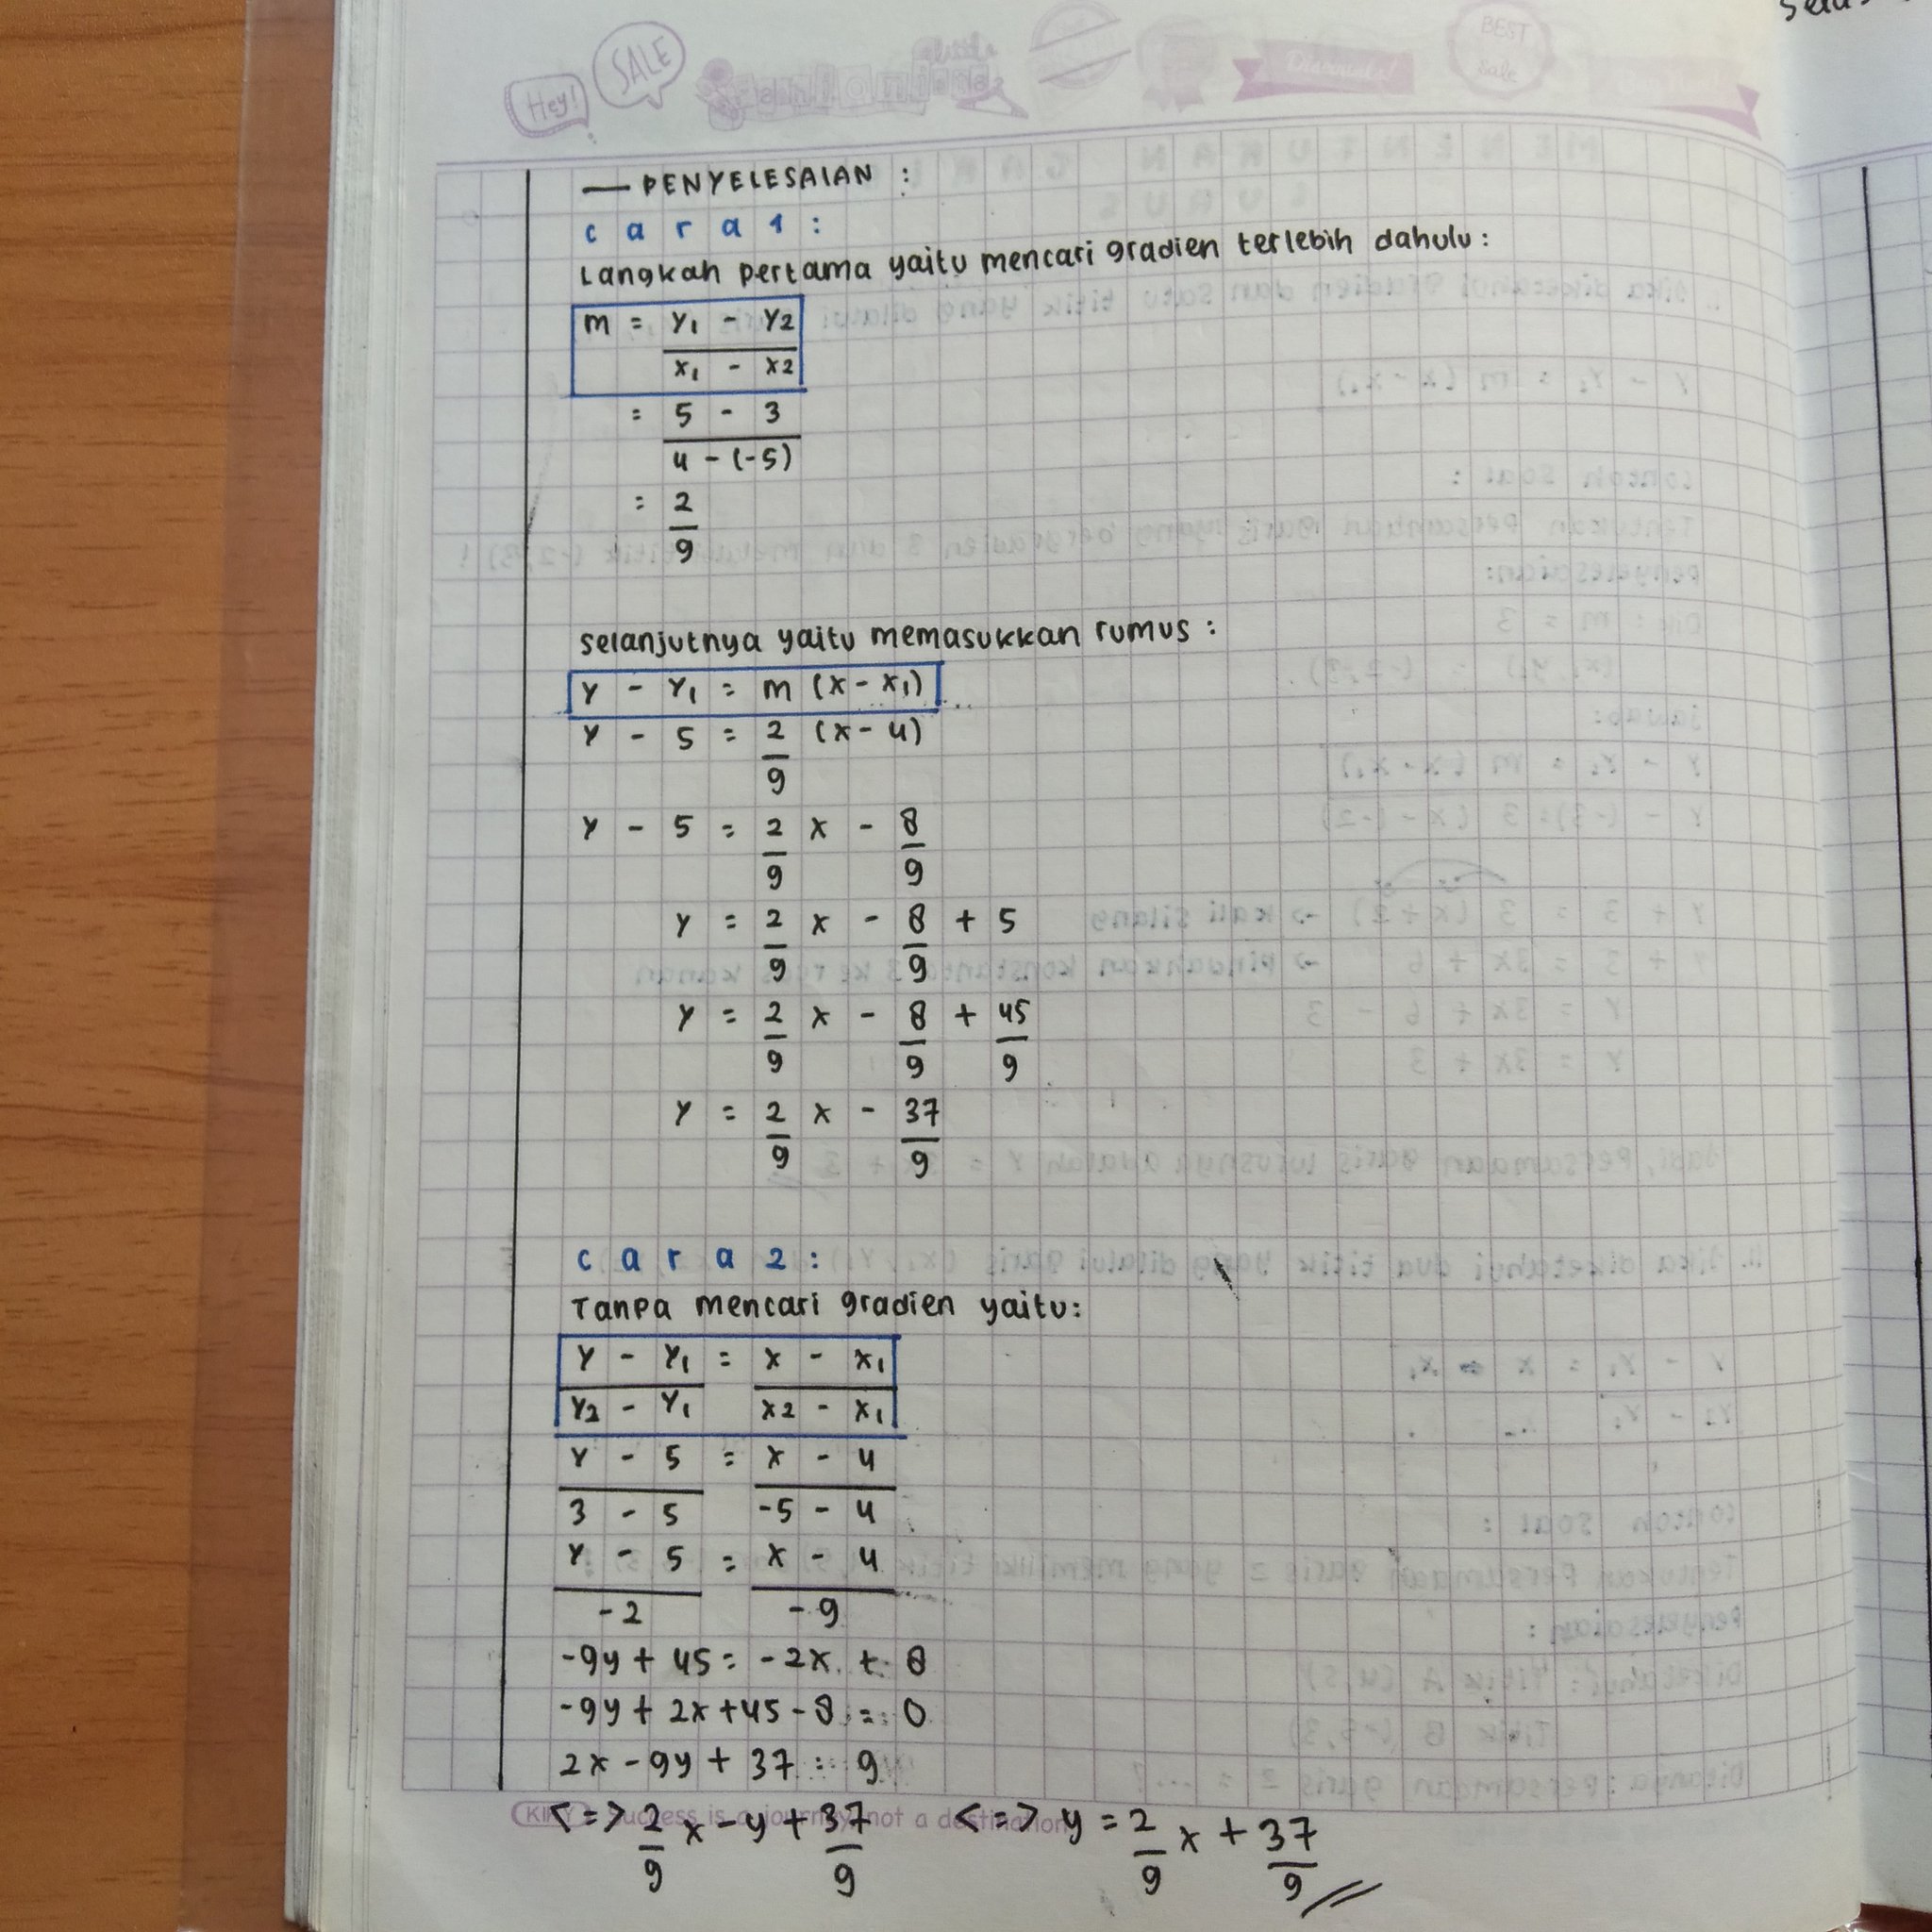 Hey!
SALE
BEST
Sale
Discounts!
— PENYELESAIAN :
cara 1 :
Langkah pertama yaitu mencari gradien terlebih dahulu :
m = Y1 - Y2
x1 - x2
= 5 - 3
4 - (-5)
= 2
9
selanjutnya yaitu memasukkan rumus :
Y - Y1 = m (x - x1)
Y - 5 = 2 (x - 4)
9
Y - 5 = 2 x - 8
9 9
Y = 2 x - 8 + 5
9 9
Y = 2 x - 8 + 45
9 9 9
Y = 2 x - 37
9 9
cara 2 :
Tanpa mencari gradien yaitu :
Y - Y1 = x - x1
Y2 - Y1 x2 - x1
Y - 5 = x - 4
3 - 5 -5 - 4
Y - 5 = x - 4
-2 -9
-9y + 45 = -2x + 8
-9y + 2x + 45 - 8 = 0
2x - 9y + 37 = 9
Success is a journey, not a destination
<=> 2 x - y + 37 <=> y = 2 x + 37
9 9 9 9